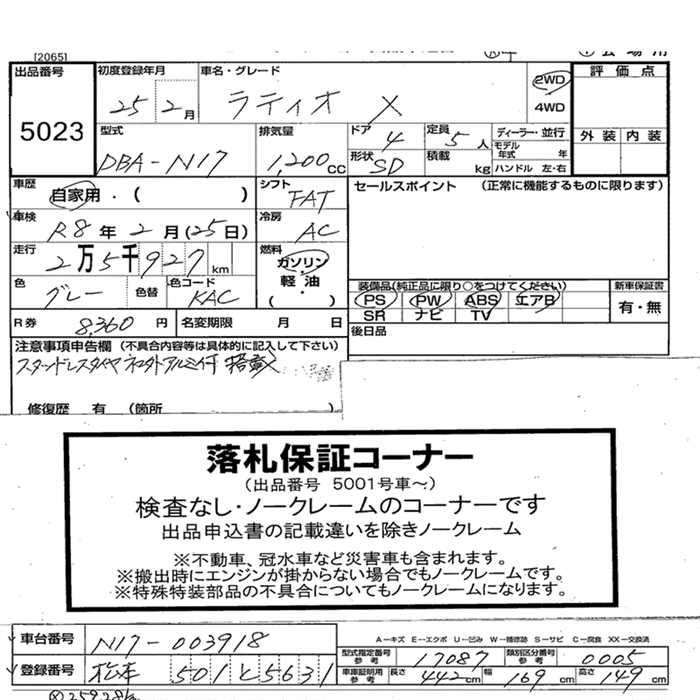 [2065]
出品番号 5023
初度登録年月 25 2月
車名・グレード ラティオ X
2WD
4WD
評価点
外装 内装
型式 DBA-N17
排気量 1,200cc
ドア 4
形状 SD
定員 5人
積載 kg
ディーラー・並行
モデル年式 年
ハンドル 左・右
車歴 自家用・( )
シフト FAT
セールスポイント (正常に機能するものに限ります)
車検 R8年2月(25日)
冷房 AC
走行 2万5千927km
燃料 ガソリン・軽油・( )
色 グレー 色替
色コード KAC
装備品(純正品に限り○をつけてください)
PS PW ABS エアB
SR ナビ TV
新車保証書 有・無
R券 8,360円
名変期限 月 日
後日品
注意事項申告欄 (不具合内容等は具体的に記入して下さい)
修復歴 有 (箇所 )
落札保証コーナー
(出品番号 5001号車~)
検査なし・ノークレームのコーナーです
出品申込書の記載違いを除きノークレーム
※不動車、冠水車など災害車も含まれます。
※搬出時にエンジンが掛からない場合でもノークレームです。
※特殊特装部品の不具合についてもノークレームになります。
車台番号 N17-003918
A-キズ E-エクボ U-凹み W-補修跡 S-サビ C-腐食 XX-交換済
型式指定番号 参考 17087
類別区分番号 参考 0005
登録番号 松本 501 と 5631
車庫証明用 参考 長さ 442cm 幅 169cm 高さ 149cm